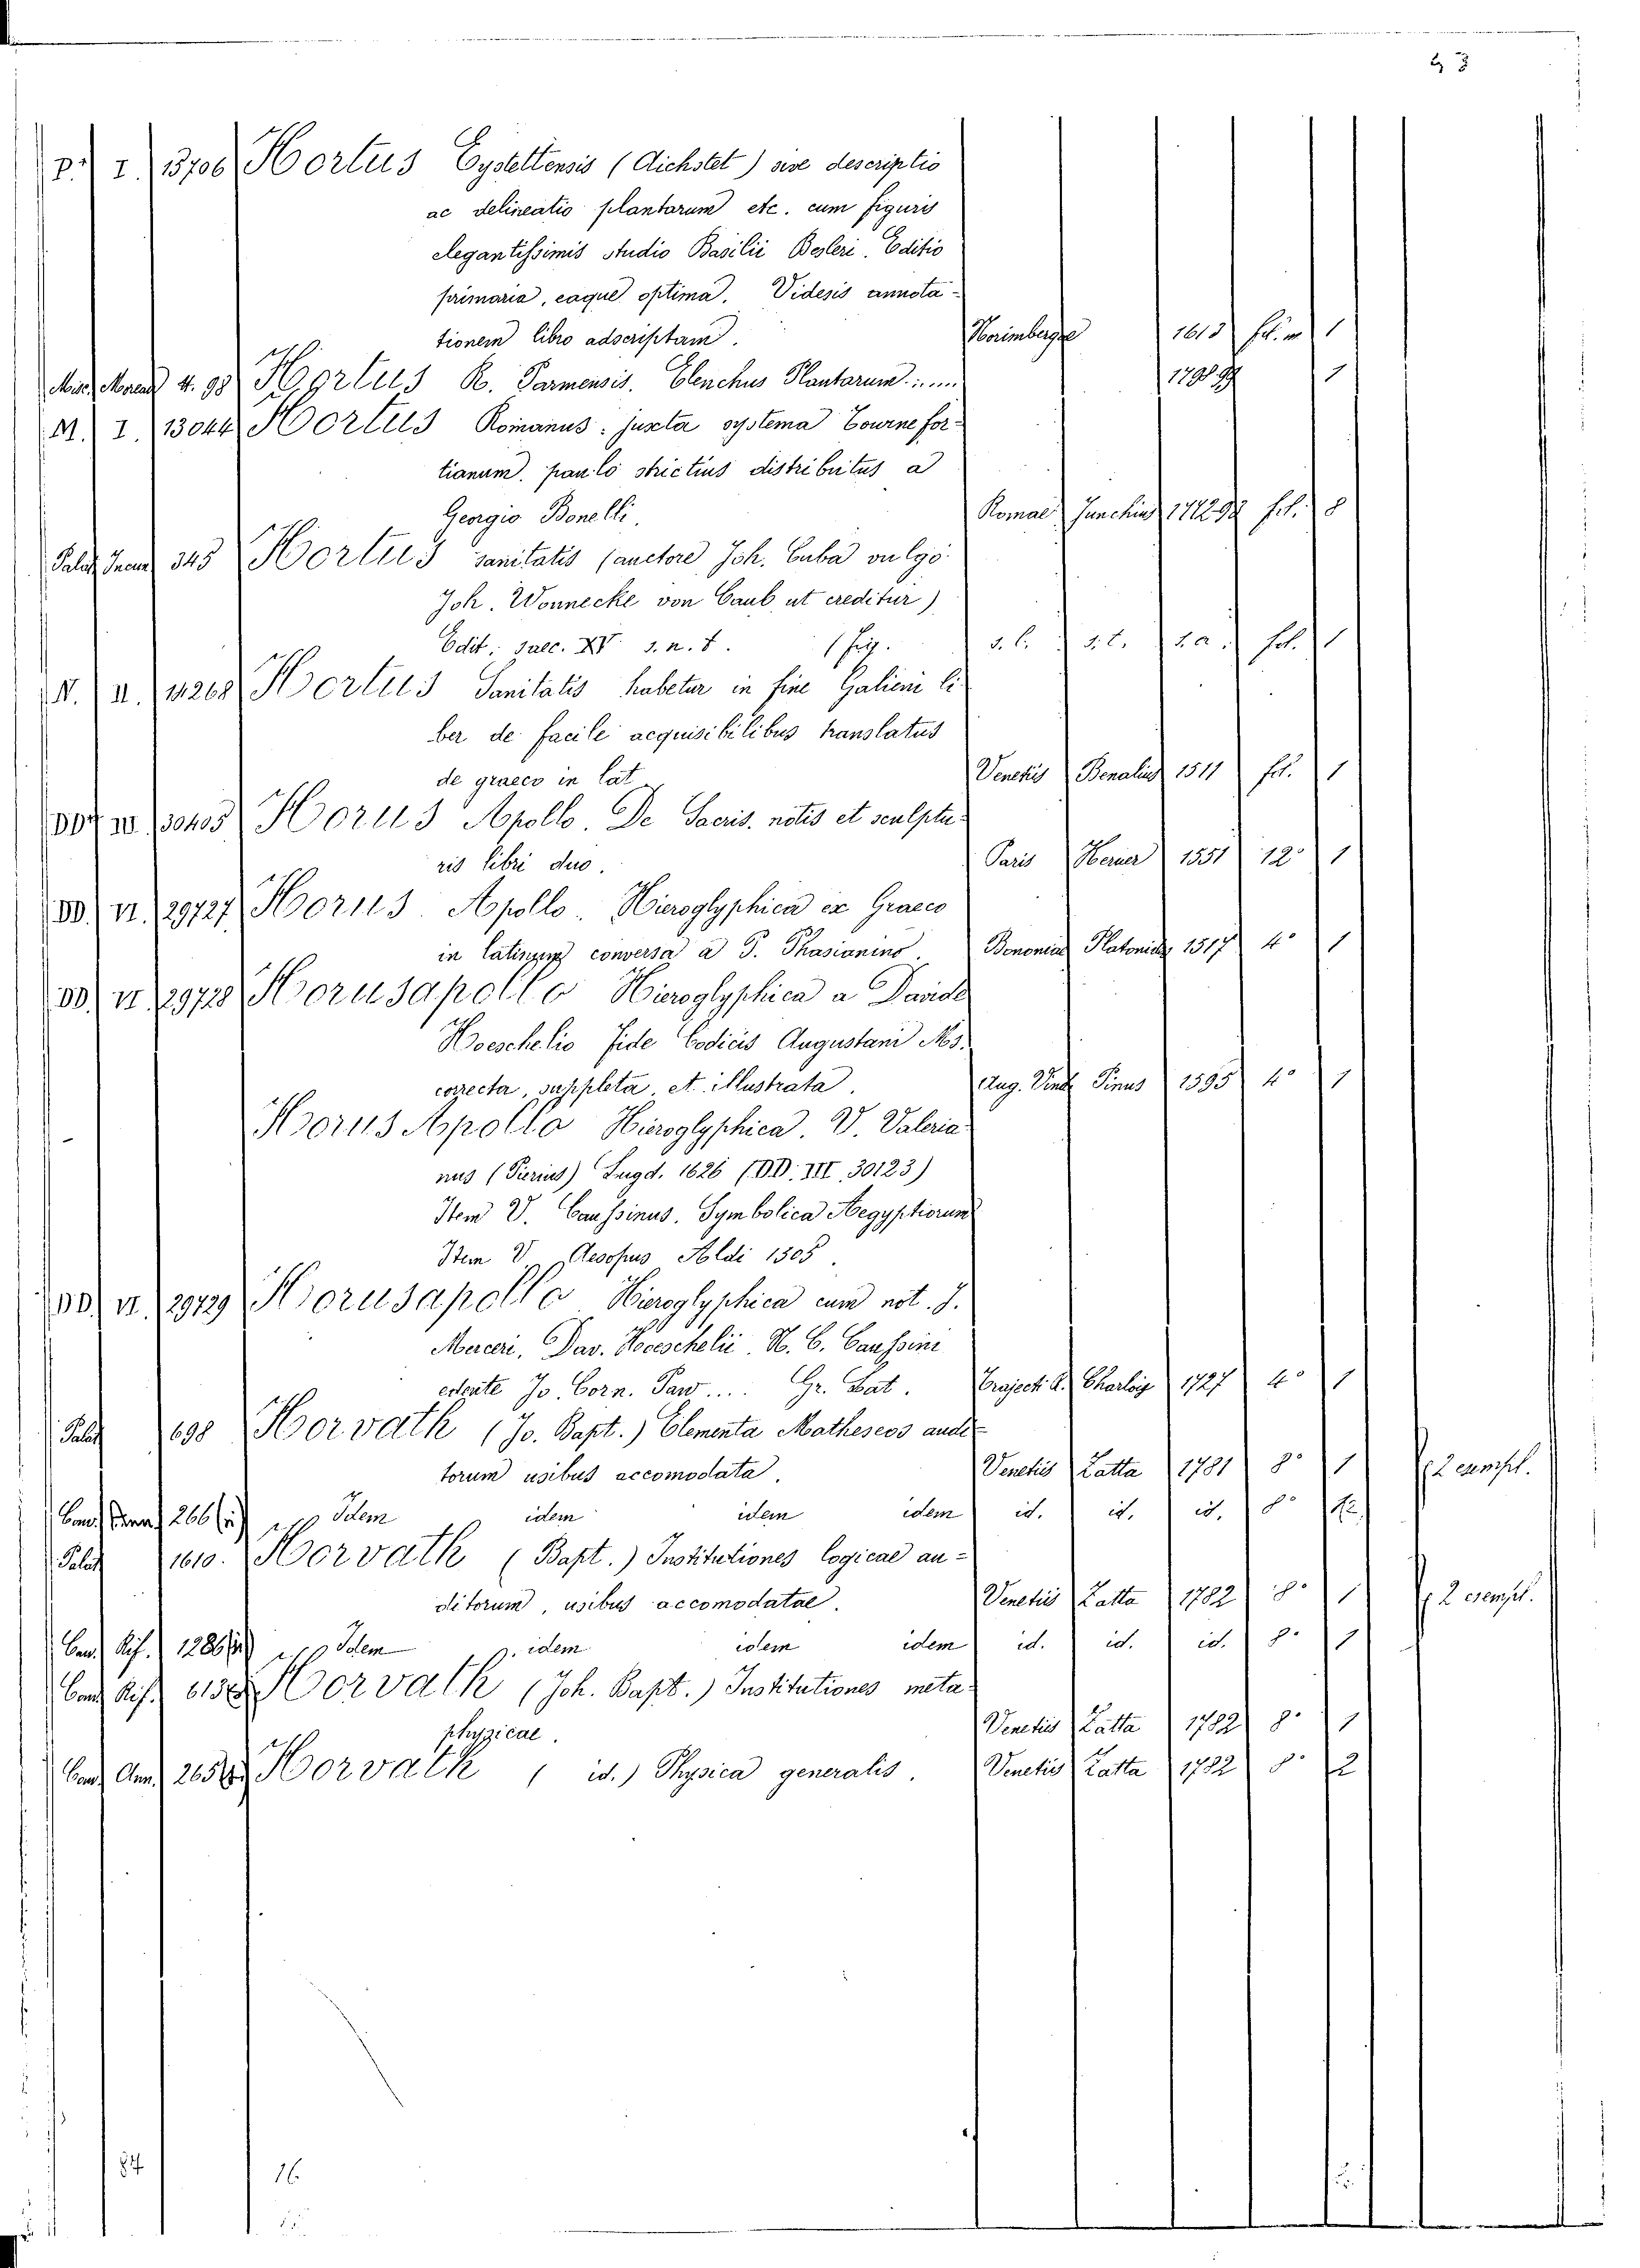 P. I. 13706 Hortus Eystettensis (Aichstet) sive descriptio
ac delineatio plantarum etc. cum figuris
elegantissimis studio Basilii Besleri. Editio
primaria, eaque optima. Videsis annota-
tionem libro adscriptam. Norimbergae 1613 fol. m 1
4. 98 Hortus R. Parmensis. Elenchus Plantarum 1798 99 1
M. I. 13044 Hortus Romanus: juxta systema Tournefor-
tianum paulo strictius distributus a
Georgio Bonelli. Romae Junchius 1772 93 fol. 8
Palat. 345 Hortus sanitatis (auctore Joh. Cuba vulgo
Joh. Wonnecke von Caub ut creditur)
Edit. saec. XV s.n.t. (fig. s.l. s.t. s.a. fol. 1
N. II. 14268 Hortus Sanitatis habetur in fine Galieni li-
ber de facile acquisibilibus translatus
de graeco in lat. Venetiis Benalius 1511 fol. 1
DD. III. 30405 Horus Apollo. De Sacris notis et sculptu-
ris libri duo. Paris Kerver 1551 12° 1
DD. VI. 29727 Horus Apollo. Hieroglyphica ex Graeco
in latinum conversa a P. Phasianino. Bononiae Platonides 1517 4° 1
DD. VI. 29728 Horusapollo Hieroglyphica a Davide
Hoeschelio fide Codicis Augustani Ms.
correcta, suppleta, et illustrata. Aug. Vind. Pinus 1595 4° 1
Horus Apollo Hieroglyphica. V. Valeria-
nus (Pierius) Lugd. 1626 (DD. III. 30123)
Item V. Caussinus. Symbolica Aegyptiorum
Item V. Aesopus Aldi 1505.
DD. VI. 29729 Horusapollo Hieroglyphica cum not. J.
Merceri, Dav. Hoeschelii. N. C. Caussini
edente Jo. Corn. Paw.... Gr. Lat. Trajecti a. Charlois 1727 4° 1
Palat. 698 Horvath (Jo. Bapt.) Elementa Matheseos audi-
torum usibus accomodata. Venetiis Zatta 1781 8° 1 2 exempl.
266 Idem idem idem idem id. id. id. 8° 2
Palat. 1610. Horvath (Bapt.) Institutiones logicae au-
ditorum, usibus accomodatae. Venetiis Zatta 1782 8° 1 2 exempl.
Cand. Rif. 1286 Idem idem idem idem id. id. id. 8° 1
Cand. Rif. 613 Horvath (Joh. Bapt.) Institutiones meta-
physicae. Venetiis Zatta 1782 8° 1
Cand. Ann. 265 Horvath (id.) Physica generalis. Venetiis Zatta 1782 8° 2
84 16